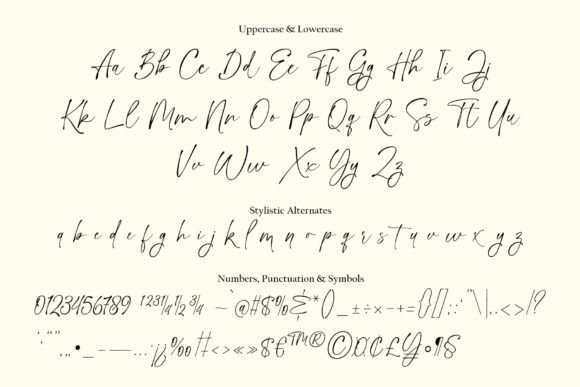 Uppercase & Lowercase
Aa Bb Cc Dd Ee Ff Gg Hh Ii Jj
Kk Ll Mm Nn Oo Pp Qq Rr Ss Tt Uu
Vv Ww Xx Yy Zz
Stylistic Alternates
a b c d e f g h i j k l m n o p q r s t u v w x y z
Numbers, Punctuation & Symbols
0123456789 ¹²³¼½¾ ~`@#$%&*()_±÷×-+={}[];:'"\|,.<>/?
‘,“”„•_-–—…·¡¿‰#<>«»$€™®©¤¢£¥°¶§